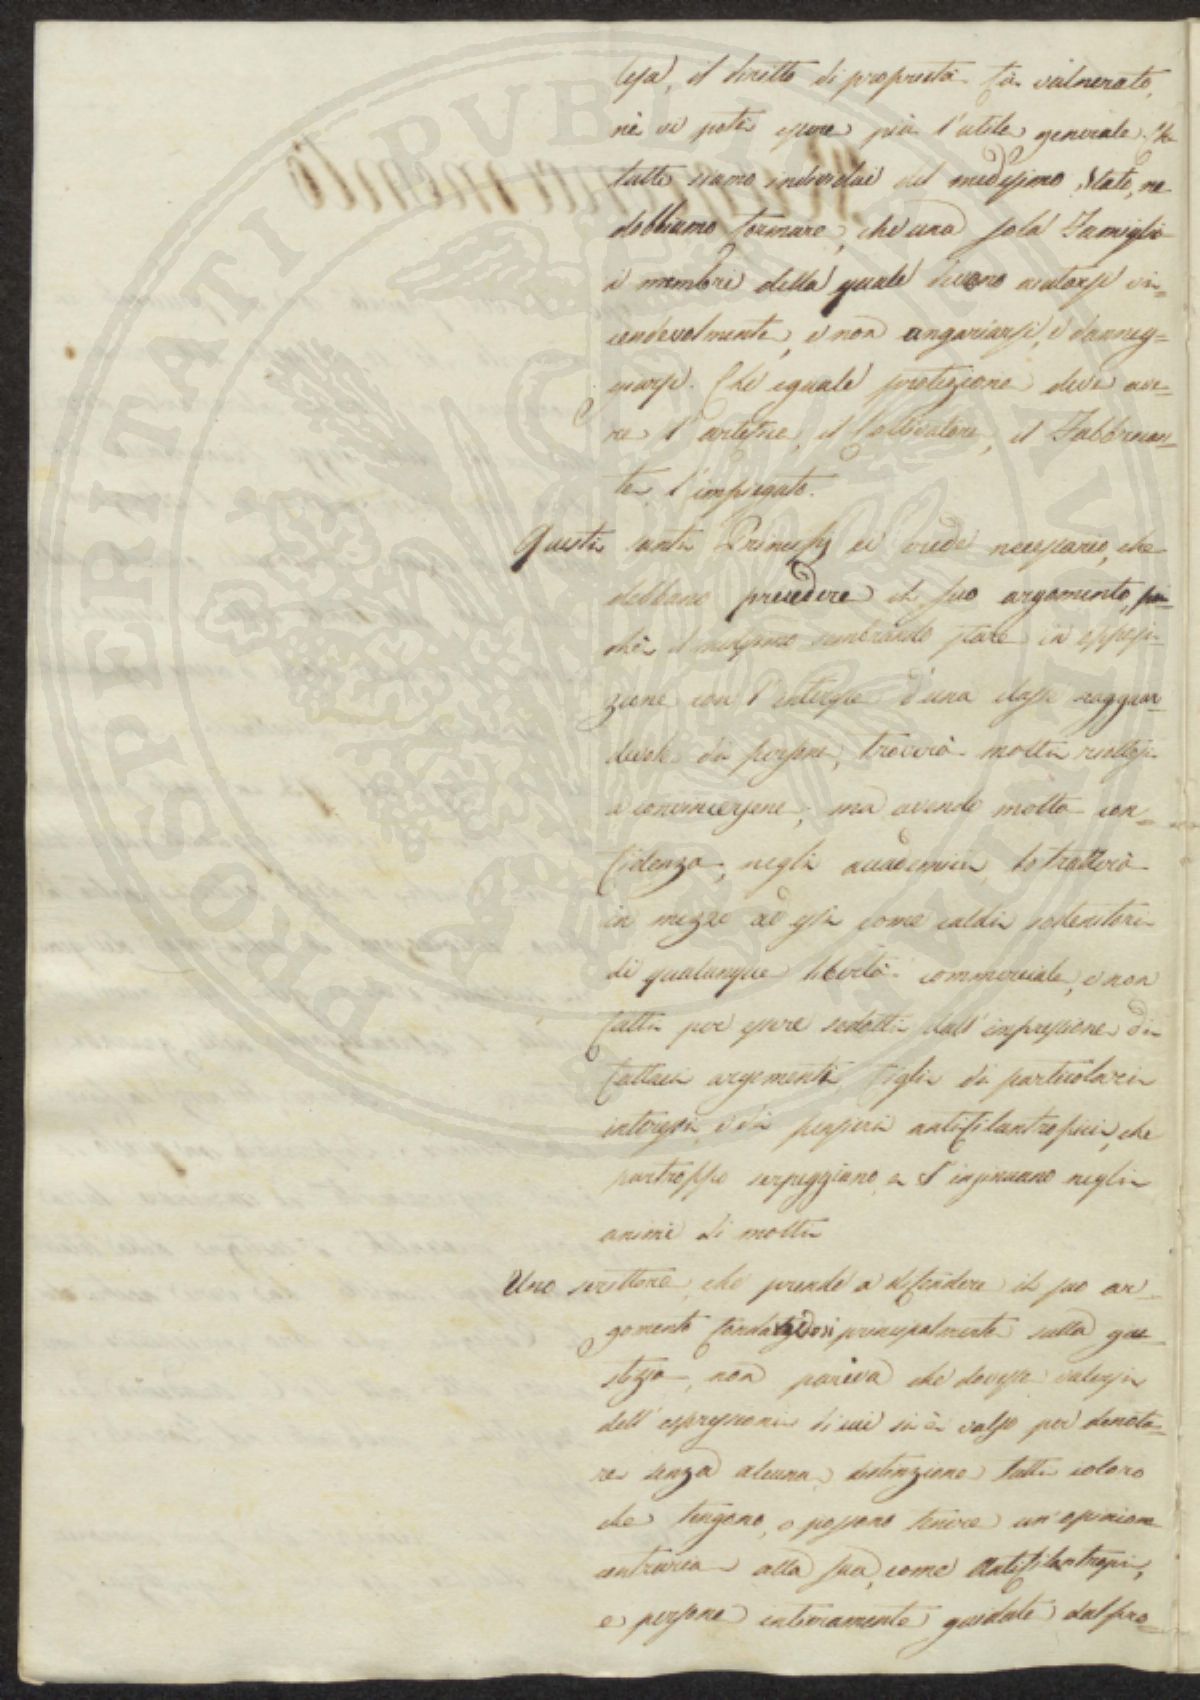 lesa, il diritto di proprietà fù vulnerato,
nè vi potè essere più l'utile generale. Che
tutti siamo individui del medesimo Stato, ne
dobbiamo formare, che una sola Famiglia
i membri della quale devono aiutarsi vi=
cendevolmente, e non angariarsi, e danneg=
giarsi. Che eguale protezione deve ave=
re l'artefice, il Coltivatore, il Fabbrican=
te, l'impiegato.
Questi santi Principj ei crede necessario, che
debbano precedere il suo argomento, poi=
chè il medesimo sembrando stare in opposi=
zione con l'interesse d'una classe ragguar=
devole di persone, troverà molti
a convincersene; ma avendo molta con=
fidenza negli accademici, lo tratterà
in mezzo ad essi come caldi sostenitori
di qualunque libertà commerciale, e non
fatti per essere sedotti dall'impressione di
fallaci argomenti figli di particolari
interessi, e di pensieri antifilantropici, che
purtroppo serpeggiano, e s'insinuano negli
animi di molti
Uno scrittore, che prende a difendere il suo ar=
gomento fondandosi principalmente sulla giu=
stizia, non pareva che dovesse valersi
dell'espressioni di cui si è valso per denota=
re senza alcuna distinzione tutti coloro
che tengono, o possono tenere un'opinione
contraria alla sua, come Antifilantropi,
e persone interamente guidate dal pro=